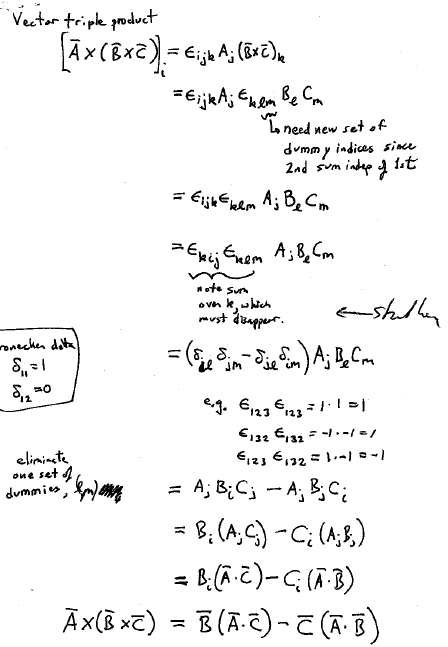 Vector triple product
[A̅ × (B̅×C̅)]ᵢ = ϵᵢⱼₖ Aⱼ (B̅×C̅)ₖ
= ϵᵢⱼₖ Aⱼ ϵₖₗₘ Bₗ Cₘ
↳ need new set of
dummy indices since
2nd sum indep of 1st
= ϵᵢⱼₖ ϵₖₗₘ Aⱼ Bₗ Cₘ
= ϵₖᵢⱼ ϵₖₗₘ Aⱼ Bₗ Cₘ
note sum
over k, which
must disappear.
←
ronecker delta
δ₁₁ = 1
δ₁₂ = 0
= (δᵢₗ δⱼₘ − δⱼₗ δᵢₘ) Aⱼ Bₗ Cₘ
e.g. ϵ₁₂₃ ϵ₁₂₃ = 1·1 = 1
ϵ₁₃₂ ϵ₁₃₂ = -1·-1 = 1
ϵ₁₂₃ ϵ₁₃₂ = 1·-1 = -1
eliminate
one set of
dummies, (l,m)
= Aⱼ Bᵢ Cⱼ − Aⱼ Bⱼ Cᵢ
= Bᵢ (Aⱼ Cⱼ) − Cᵢ (Aⱼ Bⱼ)
= Bᵢ (A̅·C̅) − Cᵢ (A̅·B̅)
A̅×(B̅×C̅) = B̅ (A̅·C̅) − C̅ (A̅·B̅)